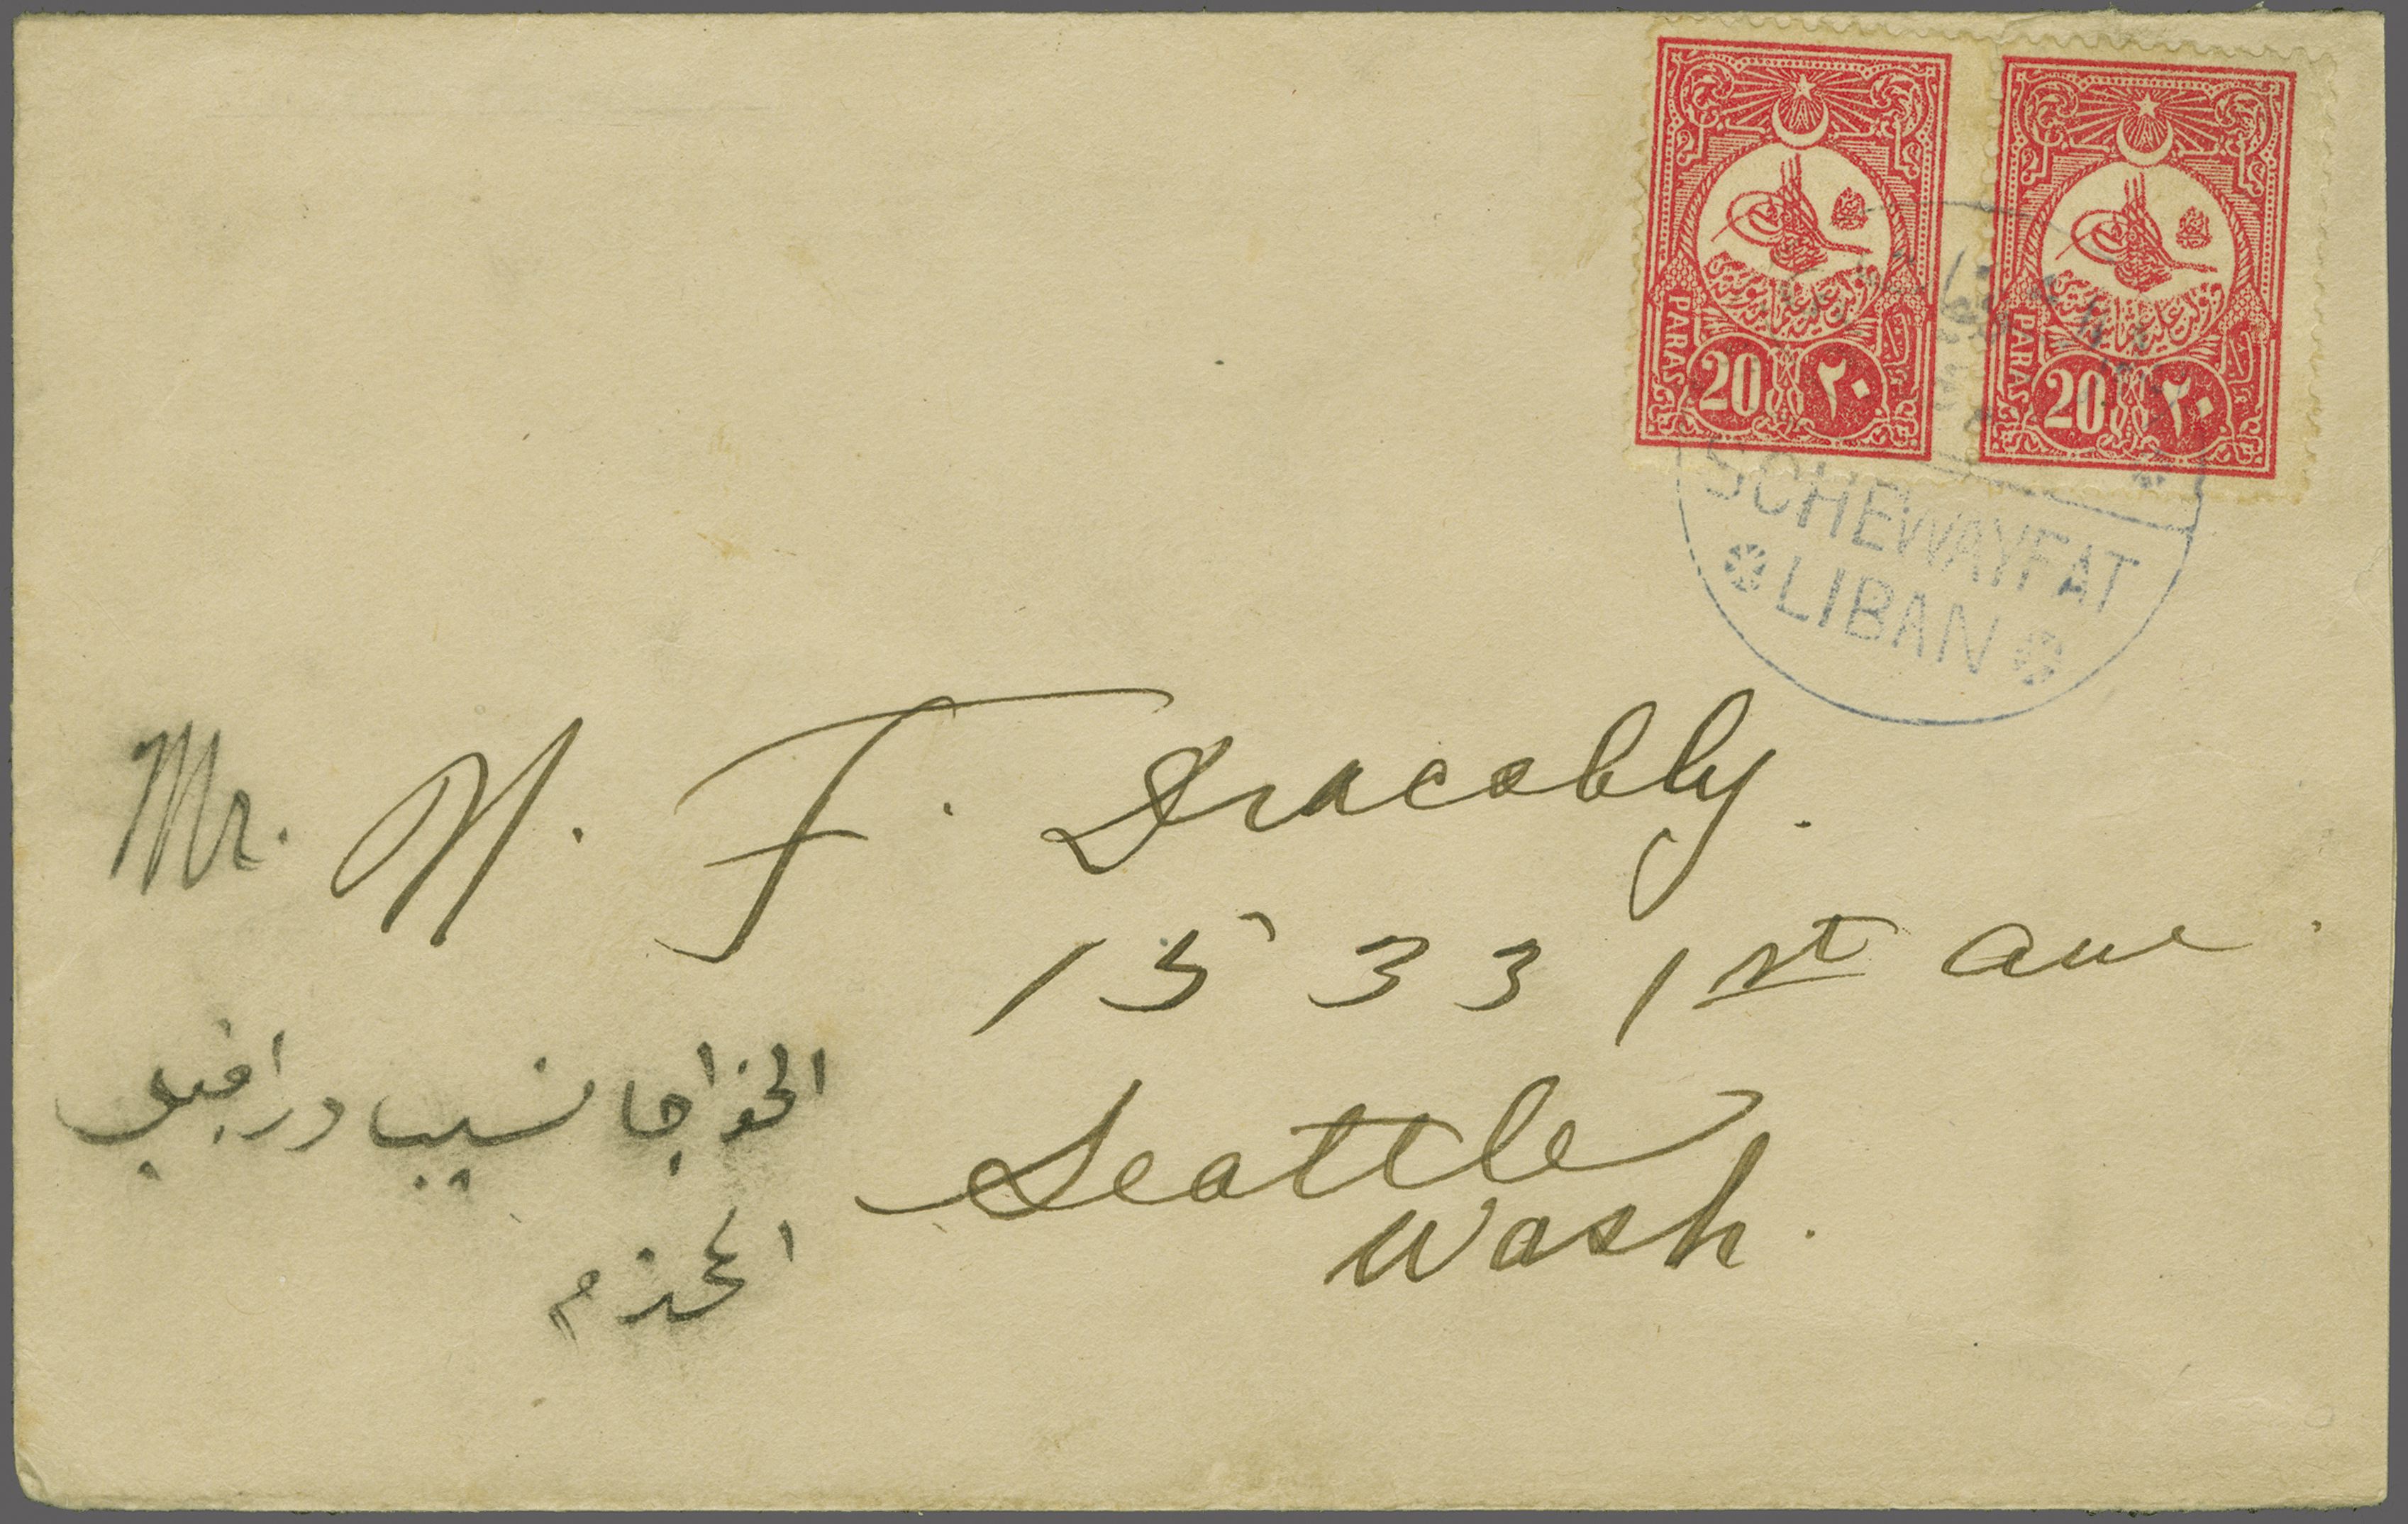 PARAS 20 ٢٠
PARAS 20 ٢٠
SCHEWAYFAT
LIBAN
Mr. N. F. Dracobly.
1533 1st ave.
Seattle
Wash.
الخواجا نسيب درافيلي
المحترم